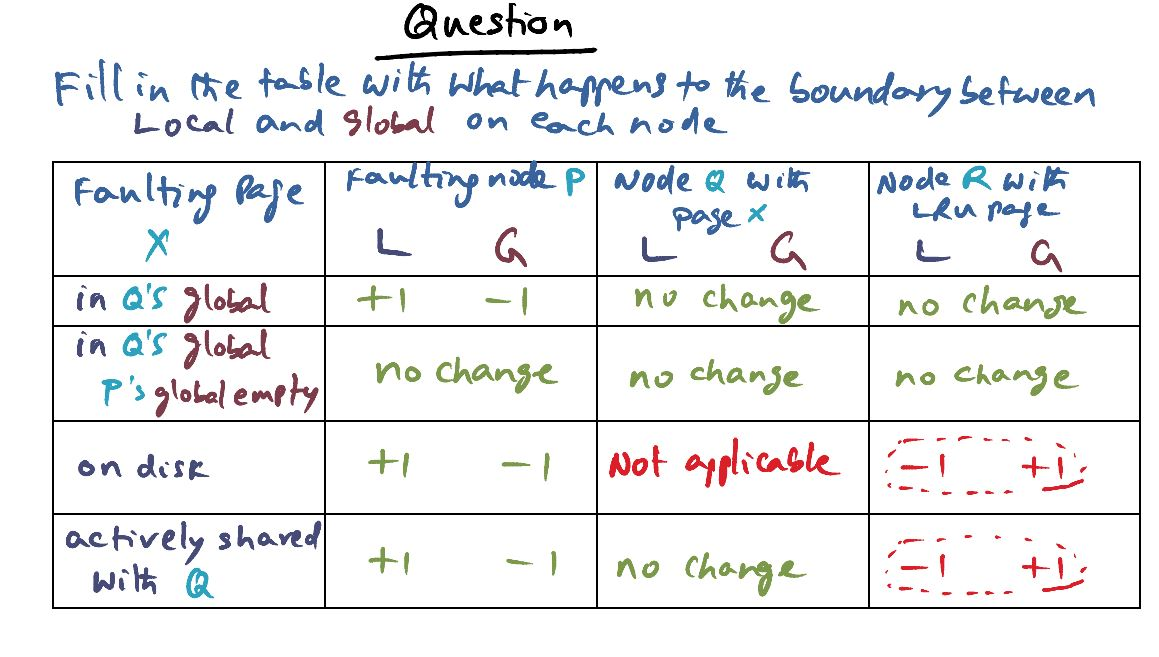 Question
Fill in the table with what happens to the boundary between
Local and global on each node
Faulting Page
X
Faulting node P
L G
Node Q with
page X
L G
Node R with
LRU page
L G
in Q's global
+1 -1
no change
no change
in Q's global
P's global empty
no change
no change
no change
on disk
+1 -1
Not applicable
-1 +1
actively shared
with Q
+1 -1
no change
-1 +1